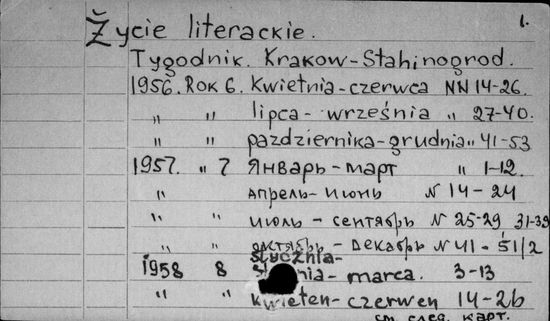 1.
Życie literackie.
Tygodnik. Krakow-Stahinogrod.
1956. Rok 6. Kwietnia-czerwca NN 14-26.
„ „ lipca-września „ 27-40.
„ „ pazdziernika-grudnia „ 41-53
1957. „ 7 Январь-март „ 1-12.
„ апрель-июнь N 14-24
„ „ июль - сентябрь N 25-29 31-39
„ „ октябрь - декабрь N 41 - 51/2
stycznia-
1958 8 marca. 3-13
„ „ kwieten-czerwen 14-26
см. след. карт.